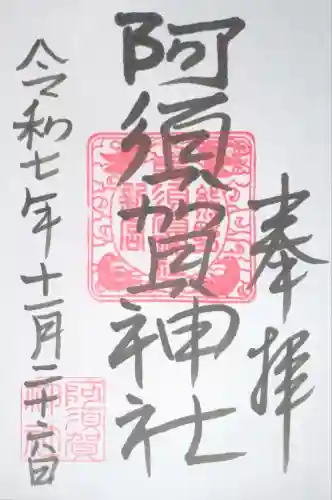 奉拝
阿須賀神社
令和七年十一月二十六日
阿須賀